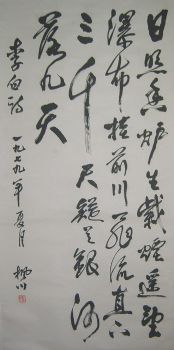 日照香炉生紫煙遥望
瀑布挂前川飛流直下
三千尺疑是銀河
落九天
李白诗
一九七九年夏月